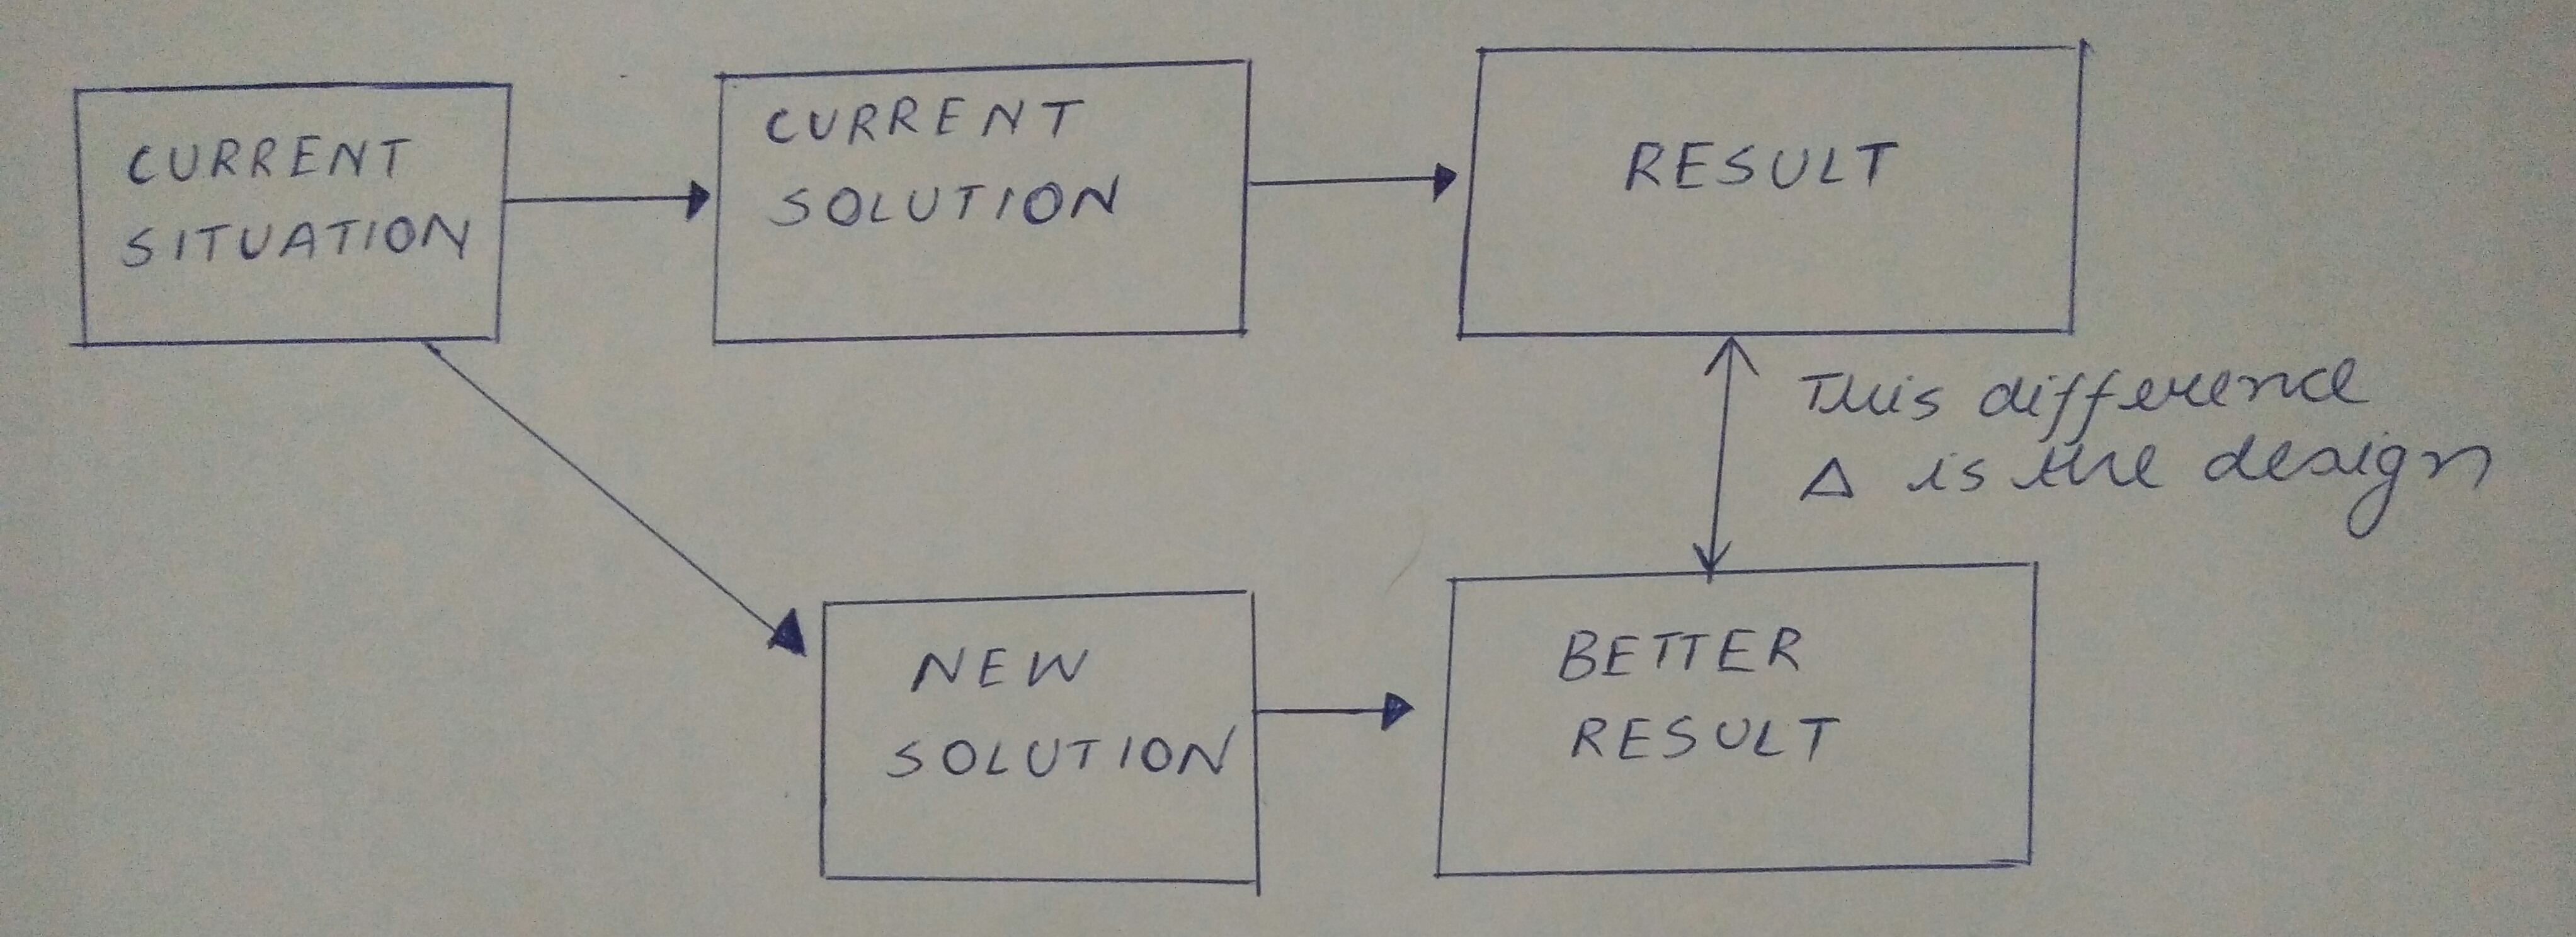 CURRENT
SITUATION
CURRENT
SOLUTION
RESULT
This difference
Δ is the design
NEW
SOLUTION
BETTER
RESULT